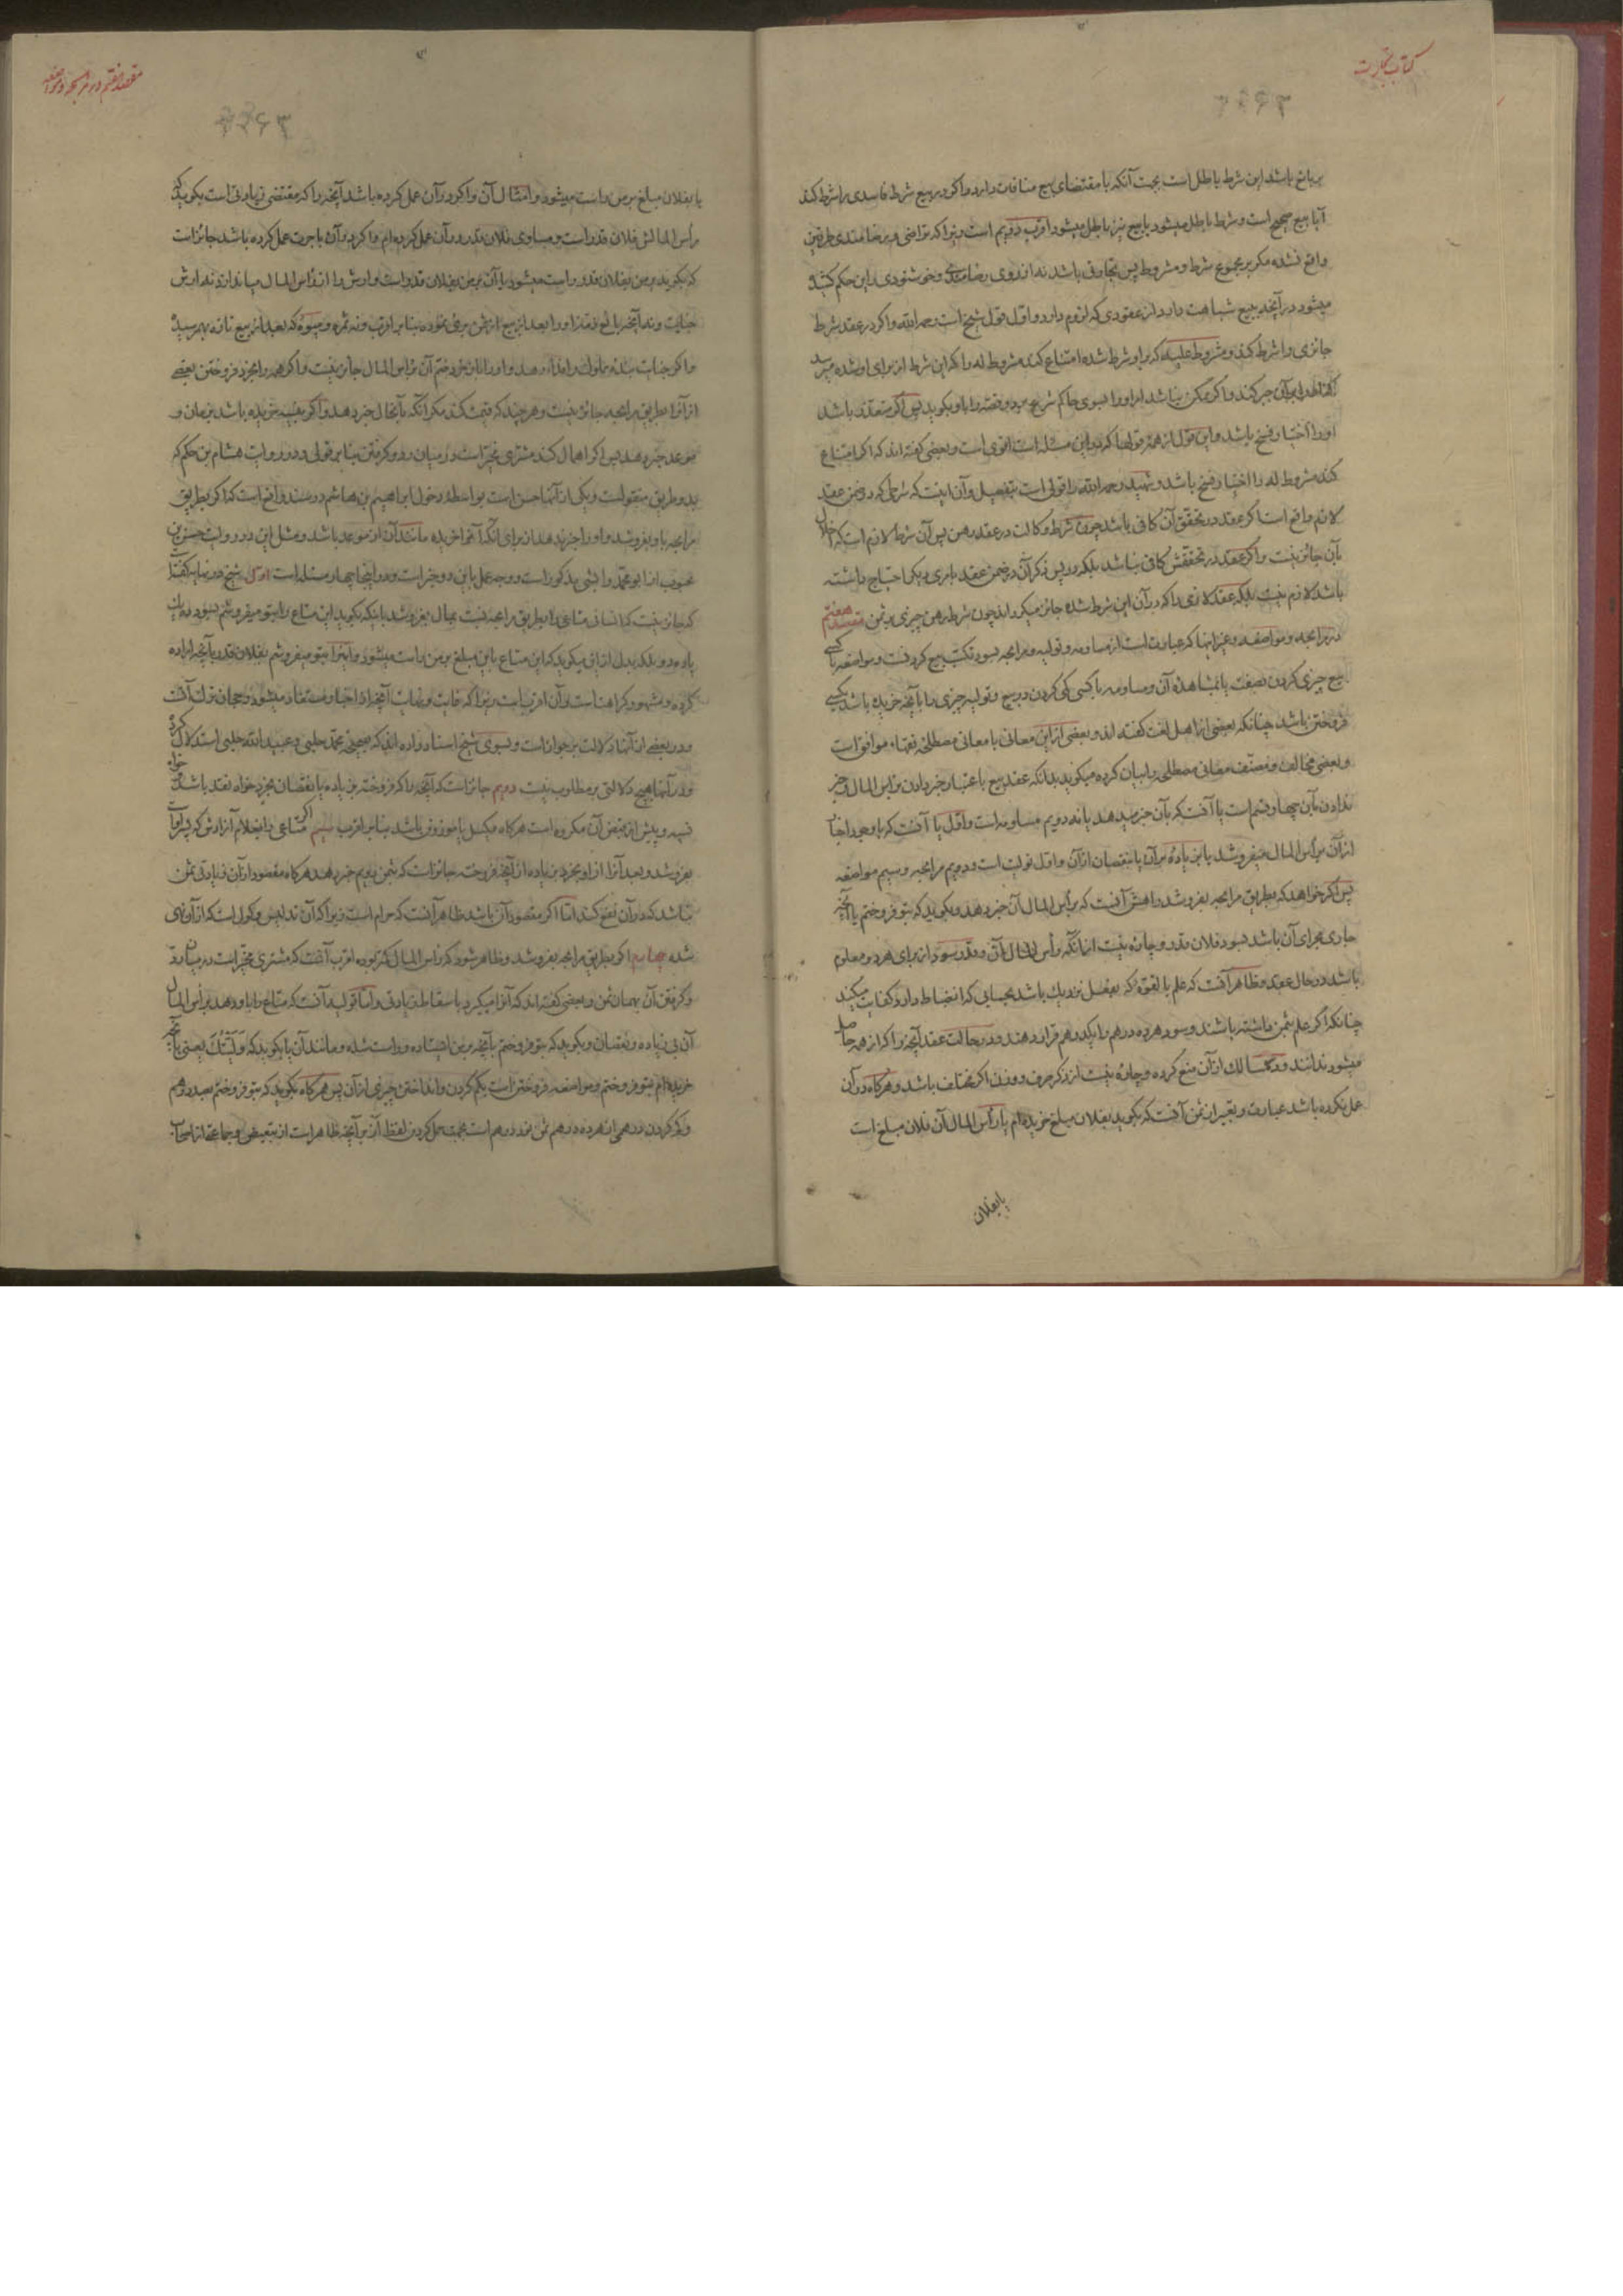 کتاب تجارت
بر بایع باشد این شرط باطل است بجهت آنکه با مقتضای بیع منافات دارد و اگر در بیع شرط فاسدی را شرط کند
آیا بیع صحیح است و شرط باطل میشود یا بیع نیز باطل میشود اقرب دویم است زیرا که تراضی و رضامندی طرفین
واقع نشده مگر بر مجموع شرط و مشروط پس تجارتی باشد نه از روی رضامندی و خوشنودی و این حکم کشیده
میشود در آنچه ببیع شباهت دارد از عقودی که لزوم دارد و اول قول شیخ است رحمه الله و اگر در عقد شرط
جائزی را شرط کند و مشروط علیه که بر او شرط شده امتناع کند مشروط له را که این شرط از برای او شده میرسد
که او را بر آن جبر کند و اگر ممکن نباشد امر او را بسوی حاکم شرع میبرد پس اگر متعذر باشد
او را اختیار فسخ باشد و این قول از همه قولها که در این مسئله است اقوی است و بعضی گفته اند که اگر امتناع
کند مشروط له را اختیار فسخ باشد و شهید رحمه الله را قولی است بتفصیل و آن اینست که شرطی که در ضمن عقد
لازم واقع است اگر عقد در تحقق آن کافی باشد چون شرط وکالت در عقد رهن پس آن شرط لازم است که اخلال
بآن جائز نیست و اگر عقد در تحققش کافی نباشد بلکه در پس ذکر آن در ضمن عقد بامری دیگر احتیاج داشته
باشد لازم نیست بلکه عقد لازمی را که در آن این شرط شده جائز میگرداند چون شرط رهن چیزی بر ثمن مقصد هفتم
در مرابحه و مواضعه و غیر اینها که عبارت است از مساومه و تولیه و مرابحه بسود تکیه بیع کردنست و مواضعه با کسی
بیع چیزی کردن بصفت یا بمشاهدهٔ آن و مساومه با کسی کمی کردن در بیع و تولیه چیزی را بآنچه خریده باشد بکسی
فروختن باشد چنانکه بعضی از اهل لغت گفته اند و بعضی از این معانی با معانی مصطلحهٔ فقهاء موافق است
و بعضی مخالف و مصنف معانی مصطلحه را بیان کرده میگوید بدانکه عقد بیع باعتبار خبر دادن برأس المال و خبر
ندادن بآن چهار قسم است یا آنست که بآن خبر میدهد یا نه دویم مساومه است و اول یا آنست که با وجود اخبار
از آن برأس المال میفروشد یا بزیاده بر آن یا بنقصان از آن و اول تولیت است و دویم مرابحه و سیم مواضعه
پس اگر خواهد که بطریق مرابحه بفروشد راهش آنست که برأس المال آن خبر دهد و بگوید که بتو فروختم یا آنچه
جاری مجرای آن باشد بسود فلان قدر و چاره نیست از آنکه رأس المال آن و قدر سود از برای هر دو معلوم
باشد در حال عقد و ظاهر آنست که علم بالقوه که بفعل نزدیک باشد بحسابی که انضباط دارد کفایت میکند
چنانکه اگر علم بثمن داشته باشند و سود هر ده درهم را یکدرهم قرار دهند و در حالت عقد آنچه را که از همه حاصل
میشود ندانند و در مسالک از آن منع کرده و چاره نیست از ذکر صرف و وزن اگر مختلف باشد و هرگاه در آن
عمل نکرده باشد عبارت و تعبیر از ثمن آنست که بگوید بفلان مبلغ خریده ام یا رأس المال آن فلان مبلغ است
یا بفلان
مقصد هفتم در مرابحه و مواضعه
یا بفلان مبلغ بر من راست میشود و امثال آن و اگر در آن عمل کرده باشد آنچه را که مقتضی زیادتی است بگوید که
رأس المالش فلان قدر است و مساوی فلان قدر در آن عمل کرده ام و اگر در آن باجرت عمل کرده باشد جائز است
که بگوید بر من بفلان قدر راست میشود یا آن بر من بفلان قدر است و ارش را از رأس المال میاندازد نه ارش
جنایت و نه آنچه بایع قدر او را بعد از بیع از ثمن برمی نموده بنا بر اقرب و نه ثمره و میوهٔ که بعد از بیع تازه بهم رسیده
و اگر جنایت بنده مملوک را فداء دهد و او را باز خرد ضم آن برأس المال جائز نیست و اگر همه را بخرد فروختن بعضی
از آن بطریق مرابحه جائز نیست و هر چند که قیمت کند مگر آنکه بآنحال خبر دهد و اگر بنسیه خریده باشد بزمان و
موعد خبر دهد پس اگر اهمال کند مشتری مخیر است در میان رد و گرفتن بنا بر قولی و در روایت هشام بن حکم که
بدو طریق منقولست و یکی از آنها حسن است بواسطهٔ دخول ابراهیم بن هاشم در سند واقع است که اگر بطریق
مرابحه باو بفروشد و او را خبر ندهد از برای آنکه آنرا خریده مانند آن از موعد باشد و مثل این در روایت حسن بن
محبوب از ابو محمد وابشی مذکور است و وجه عمل باین دو خبر است و در اینجا چهار مسئله است اول شیخ در نهایه گفته است
که جائز نیست که انسانی متاعی را بطریق مرابحه نسبت بمال بفروشد بآنکه بگوید این متاع را بتو میفروشم بسود ده یک
یا ده دو بلکه بدل از این میگوید که این متاع باین مبلغ بر من راست میشود و اینرا بتو میفروشم بفلان قدر بآنچه اراده
کرده و مشهور کراهتست و آن اقرب است زیرا که غایت و نهایت آنچه از اخبار مستفاد میشود رجحان ترک آنست
و در بعضی از آنها دلالت بر جواز است و بسوی شیخ اسناد داده اند که بصحیح محمد حلبی و عبید الله حلبی استدلال کرده
و در آنها هیچ دلالتی بر مطلوب نیست دویم جائز است که آنچه را که فروخته بزیاده یا نقصان بخرد خواه نقد باشد خواه
نسیه و پیش از قبض آن مکروه است هرگاه مکیل یا موزون باشد بنا بر اقرب سیم اگر متاعی را بغلام آزادش که پسر او است
بفروشد و بعد آنرا از او بخرد بزیاده از آنچه فروخته جائز است که بثمن دویم خبر دهد هرگاه مقصود از آن زیادتی ثمن
نباشد که در آن نفع کند اما اگر مقصود آن باشد ظاهر آنست که حرام است زیرا که آن تدلیس و گول است که از آن نهی
شده چهارم اگر بطریق مرابحه بفروشد و ظاهر شود که رأس المال کمتر بوده اقرب آنست که مشتری مخیر است در میان رد
و گرفتن آن بهمان ثمن و بعضی گفته اند که آنرا میگیرد باسقاط زیادتی و اما تولیه آنست که متاع را باو دهد برأس المال
آن بی زیاده و نقصان و بگوید که بتو فروختم بآنچه بر من ایستاده و راست شده و مانند آن یا بگوید که ولیتک یعنی بآنچه
خریده ام بتو فروختم و مواضعه فروختن است بکم کردن و انداختن چیزی از آن پس هرگاه بگوید که بتو فروختم بصد درهم
و کم کردن درهمی از هر ده درهم ثمن نود درهم است بجهت حمل کردن لفظ از بر آنچه ظاهر است از تبعیض و جماعتی از اصحاب